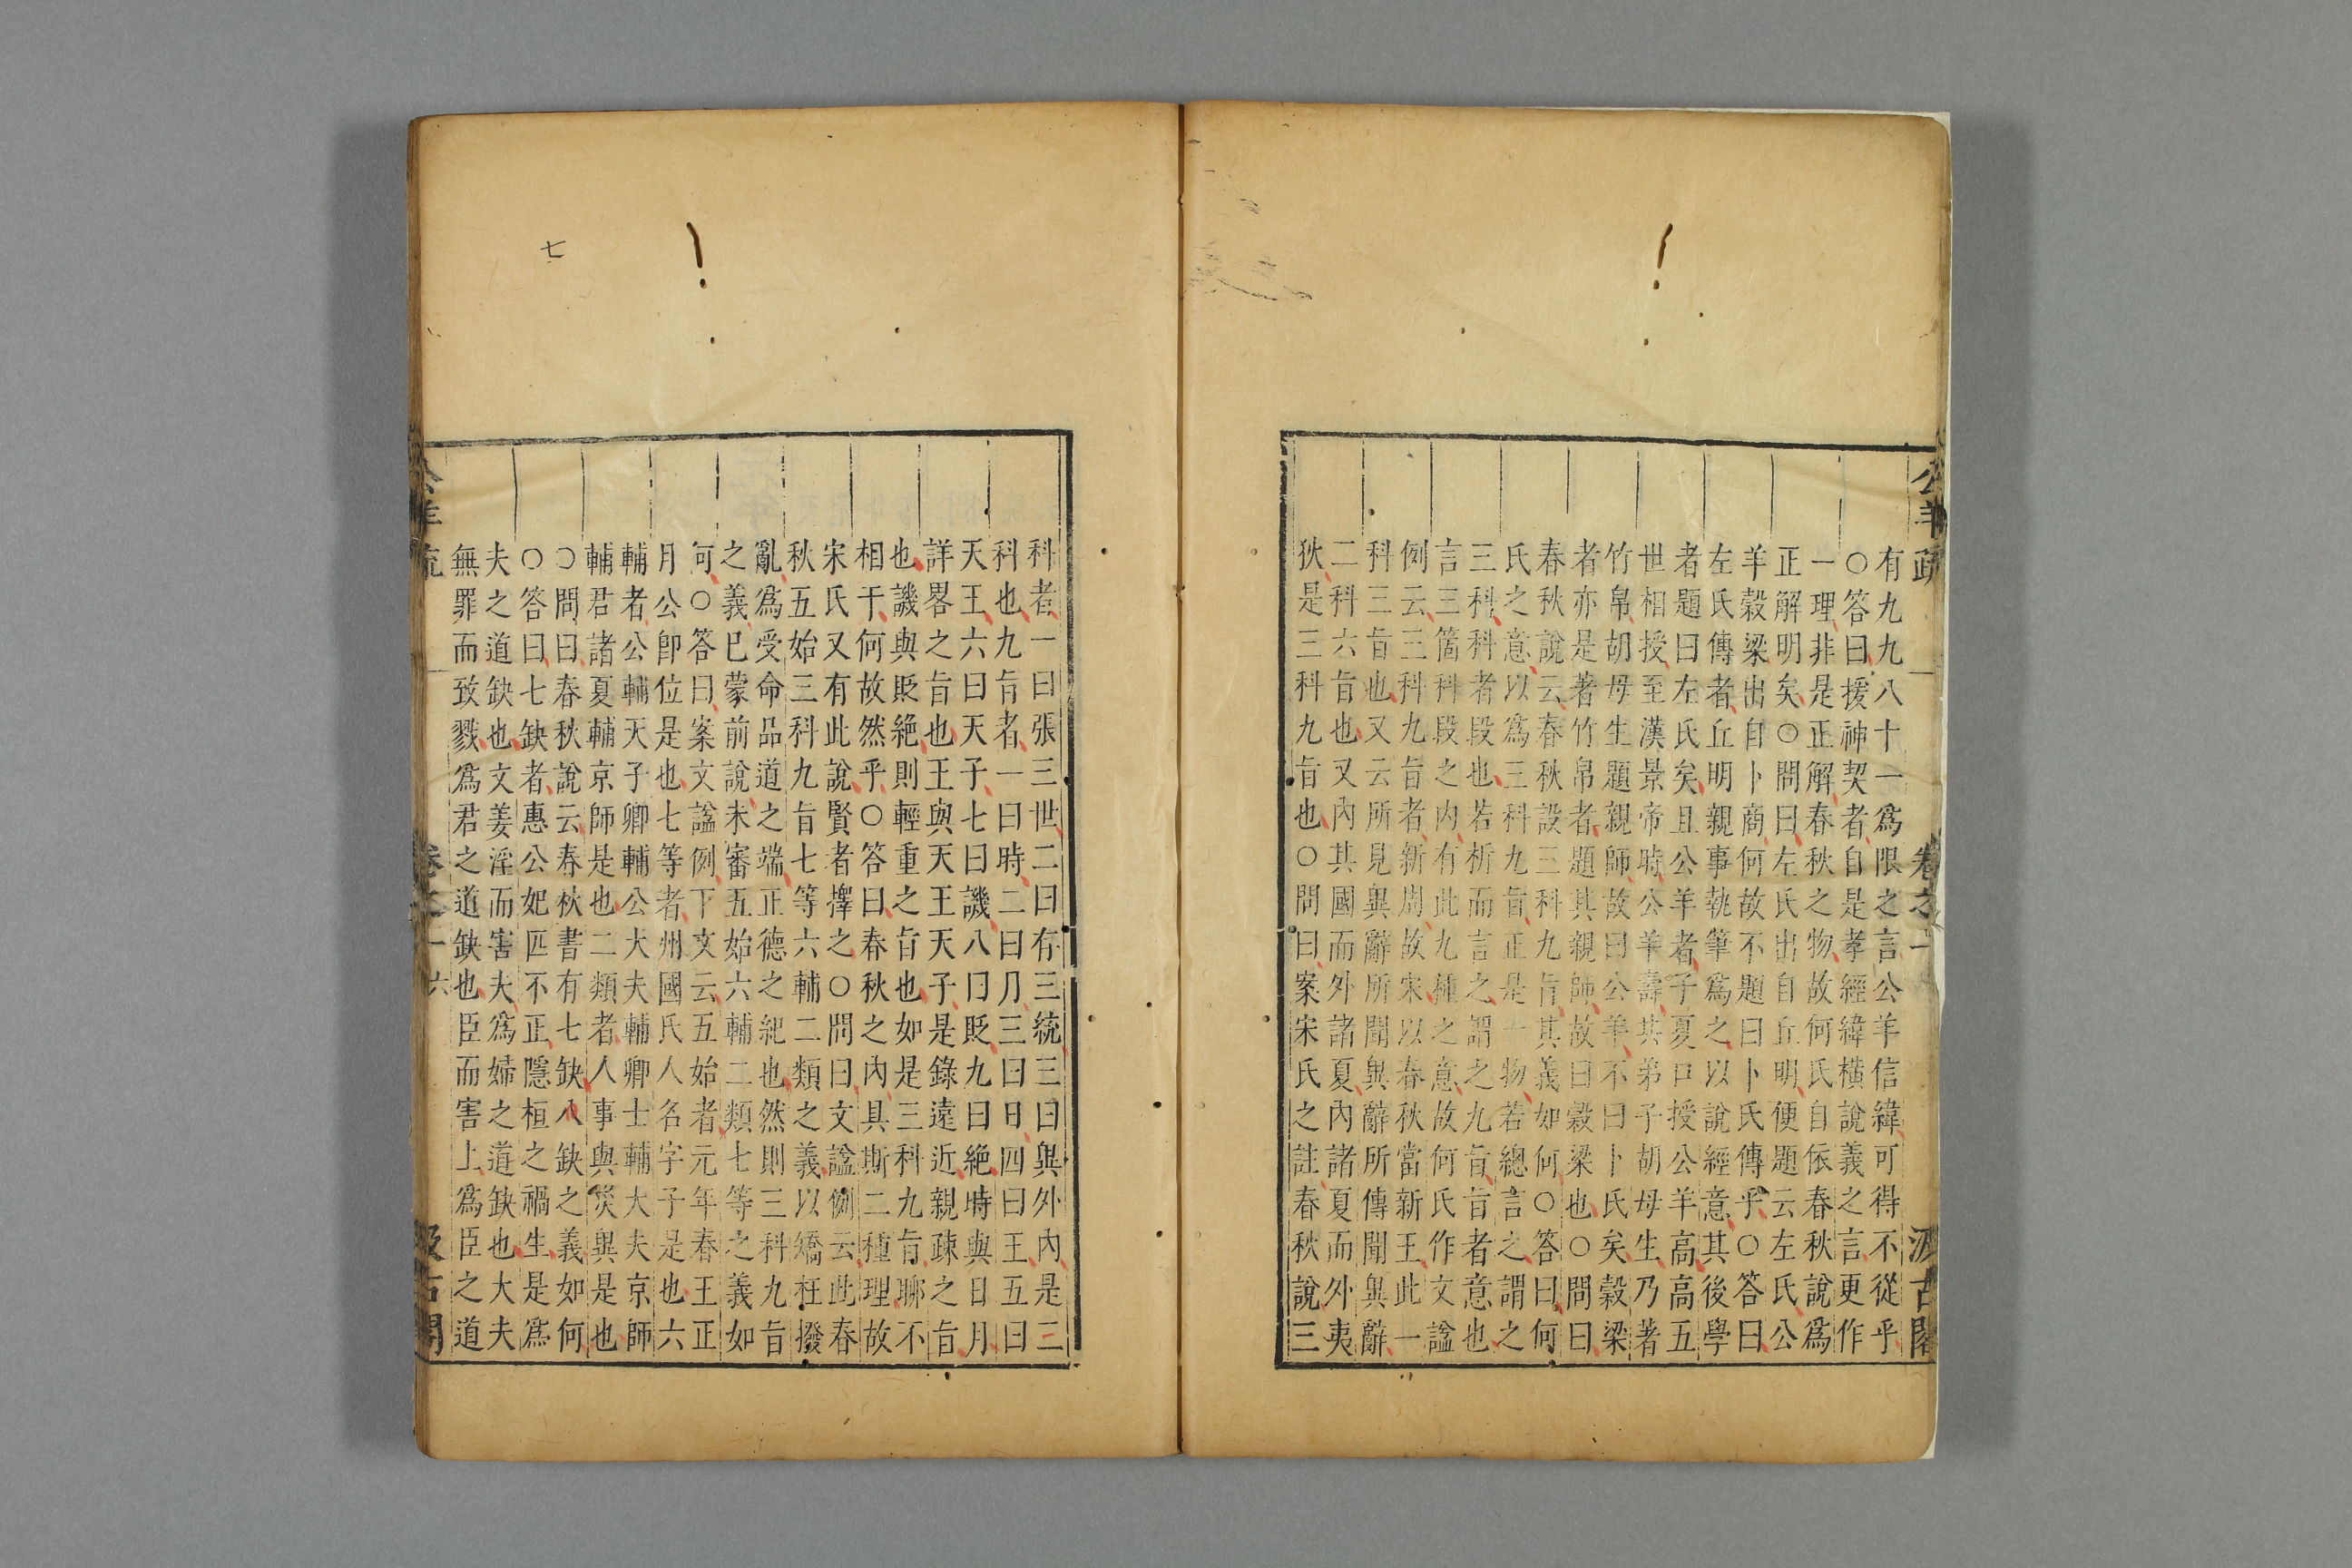 公羊疏
卷之一
汲古閣
有九九八十一爲限之言公羊信緯可得不從乎
○答曰援神契者自是孝經緯橫說義之言更作
一理非是正解春秋之物故何氏自依春秋說爲
正解明矣○問曰左氏出自丘明便題云左氏公
羊穀梁出自卜商何故不題曰卜氏傳乎○答曰
左氏傳者丘明親事執筆爲之以說經意其後學
者題曰左氏矣且公羊者子夏口授公羊高高五
世相授至漢景帝時公羊壽共弟子胡母生乃著
竹帛胡母生題親師故曰公羊不曰卜氏矣穀梁
者亦是著竹帛者題其親師故曰穀梁也○問曰
春秋說云春秋設三科九旨其義如何○答曰何
氏之意以爲三科九旨正是一物若總言之謂之
三科科者段也若析而言之謂之九旨旨者意也
言三箇科段之內有此九種之意故何氏作文諡
例云三科九旨者新周故宋以春秋當新王此一
科三旨也又云所見異辭所聞異辭所傳聞異辭
二科六旨也又內其國而外諸夏內諸夏而外夷
狄是三科九旨也○問曰案宋氏之註春秋說三
科者一曰張三世二曰存三統三曰異外內是三
科也九旨者一曰時二曰月三曰日四曰王五曰
天王六曰天子七曰譏八曰貶九曰絶時與日月
詳畧之旨也王與天王天子是錄遠近親疎之旨
也譏與貶絶則輕重之旨也如是三科九旨聊不
相干何故然乎○答曰春秋之內具斯二種理故
宋氏又有此說賢者擇之○問曰文諡例云此春
秋五始三科九旨七等六輔二類之義以矯枉撥
亂爲受命品道之端正德之紀也然則三科九旨
之義已蒙前說未審五始六輔二類七等之義如
何○答曰案文諡例下文云五始者元年春王正
月公卽位是也七等者州國氏人名字子是也六
輔者公輔天子卿輔公大夫輔卿士輔大夫京師
輔君諸夏輔京師是也二類者人事與災異是也
○問曰春秋說云春秋書有七缺八缺之義如何
○答曰七缺者惠公妃匹不正隱桓之禍生是爲
夫之道缺也文姜淫而害夫爲婦之道缺也大夫
無罪而致戮爲君之道缺也臣而害上爲臣之道
公羊 疏
卷之一 六
汲古閣
七